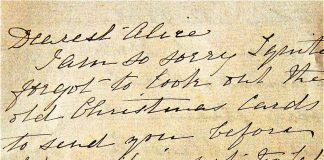 Dearest Alice
I am so sorry I quite
forgot to look out the
old Christmas Cards
to send you before